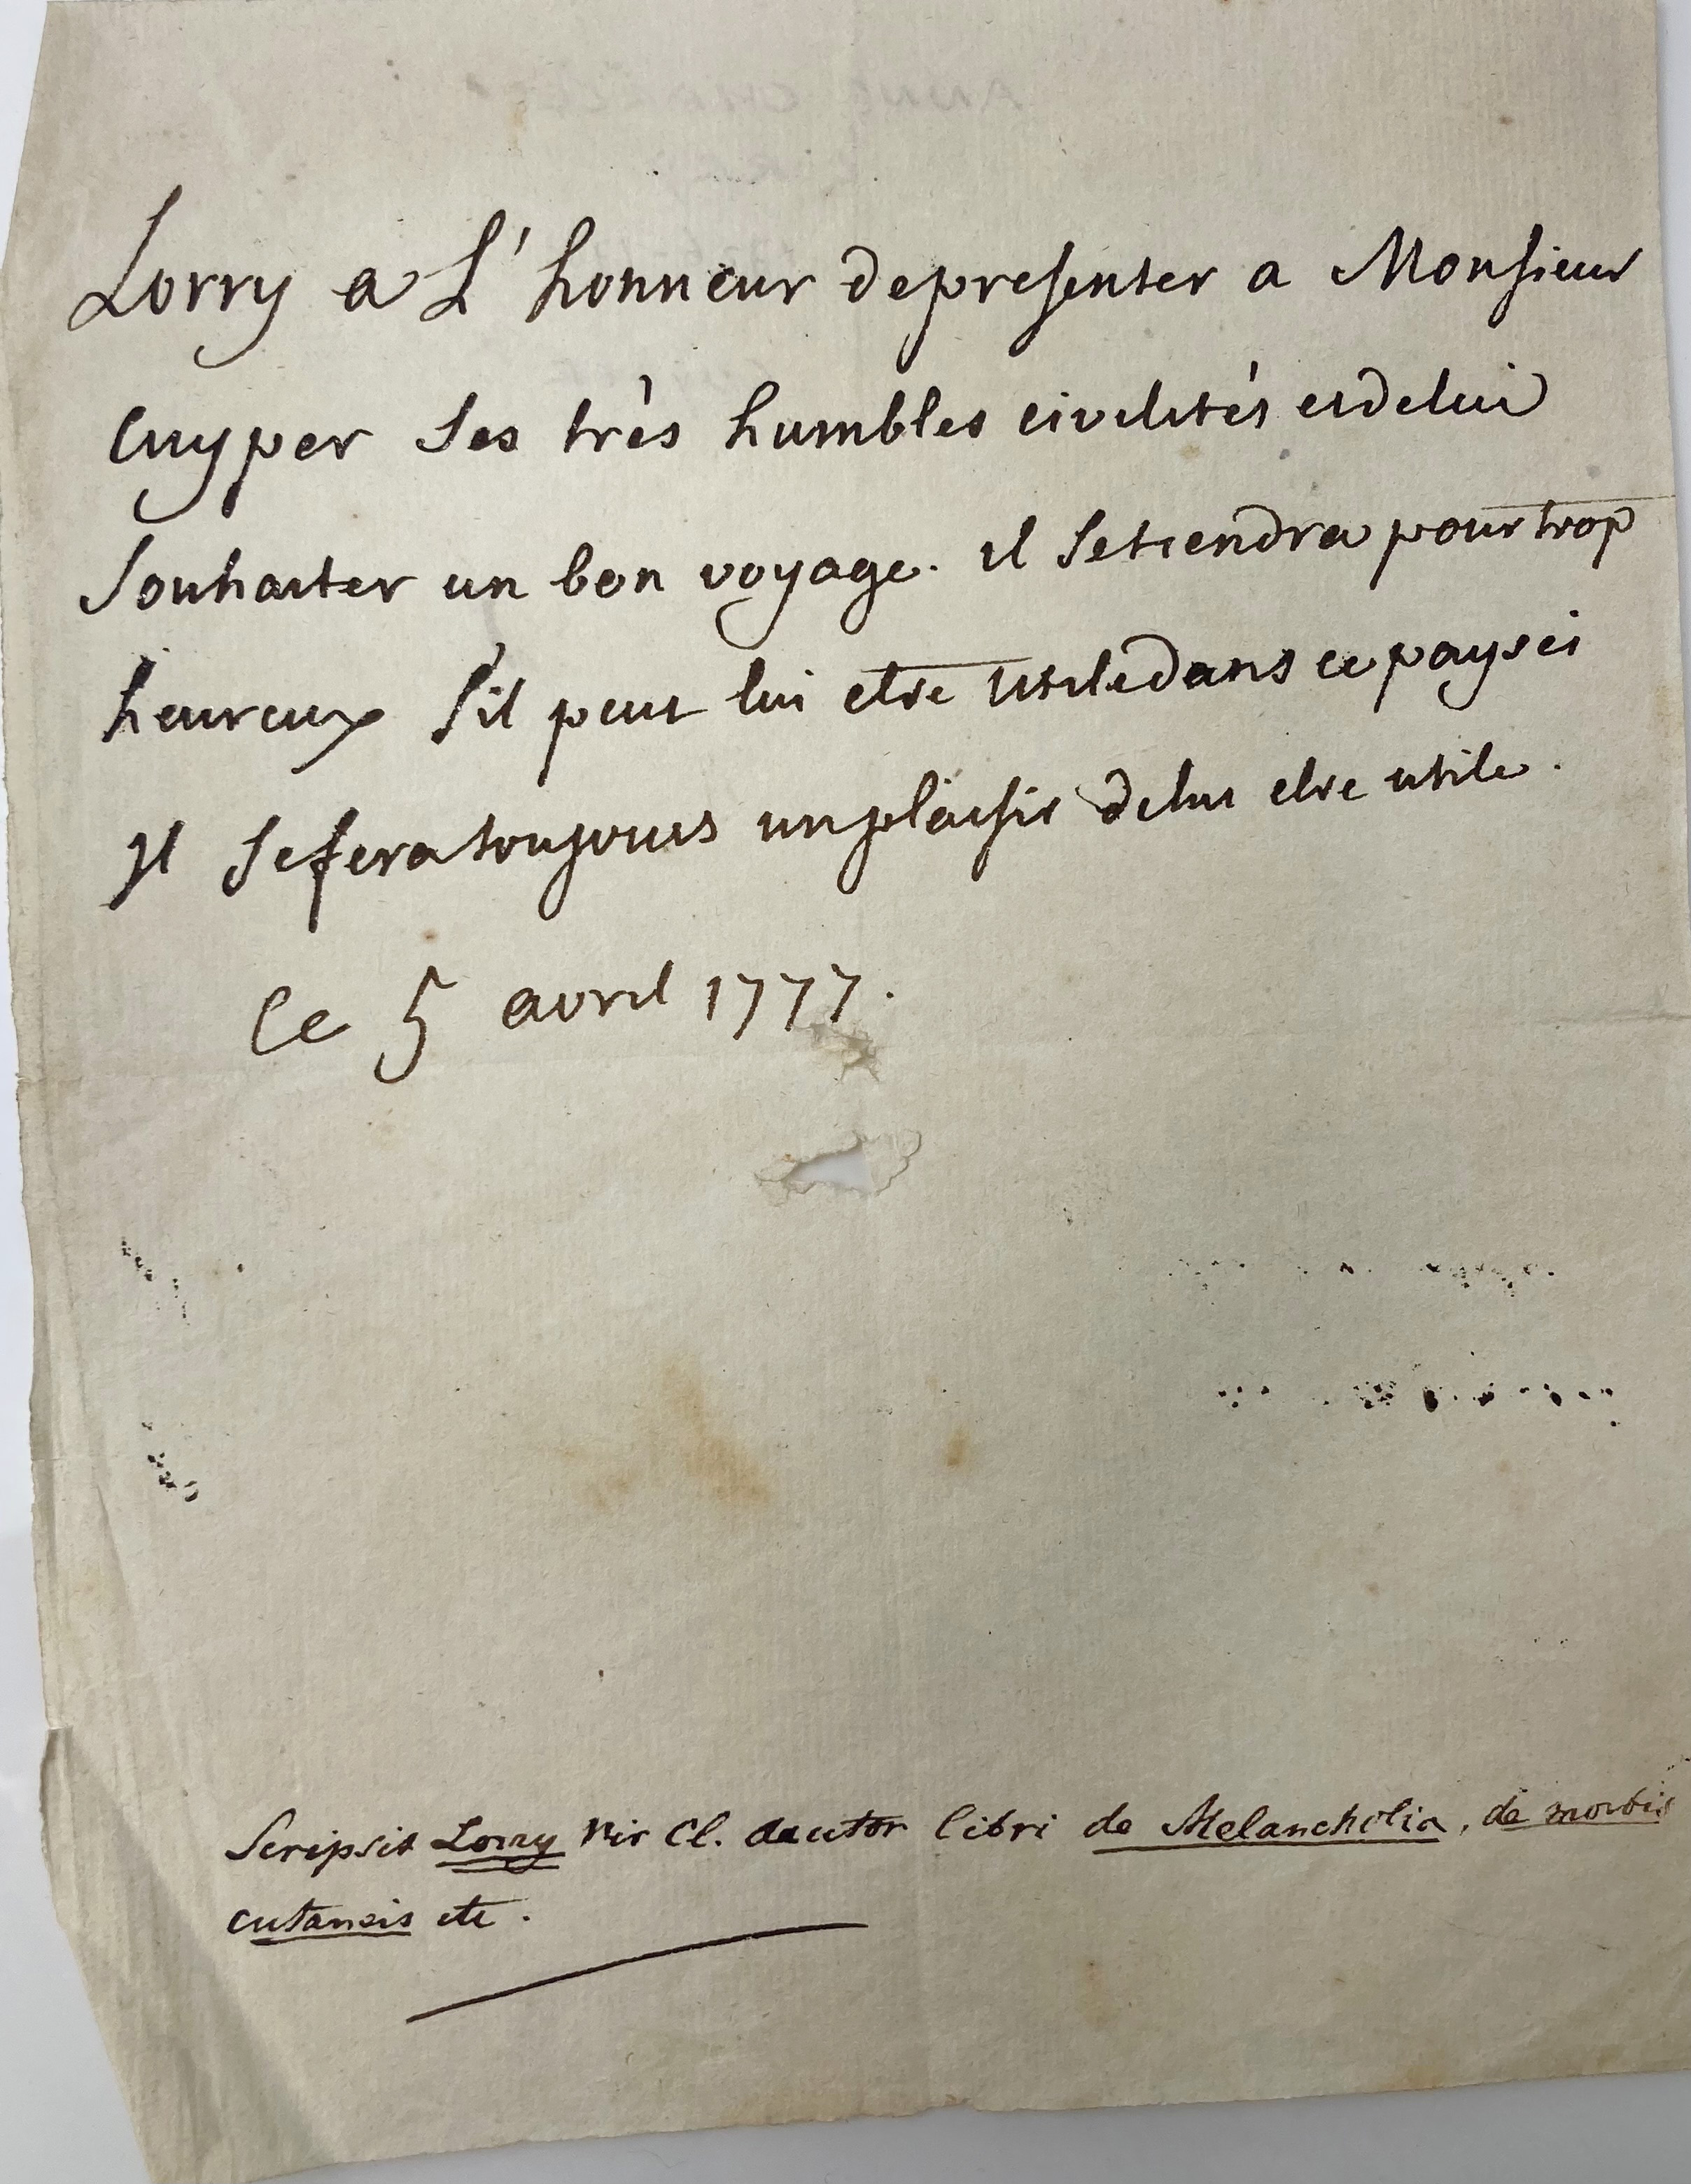 Lorry a L'honneur de presenter a Monsieur
Cuyper ses très humbles civilités et de lui
souhaiter un bon voyage. il se tiendra pour trop
heureux s'il peut lui etre utile dans ce pays ci
Il se fera toujours un plaisir de lui etre utile.
Ce 5 avril 1777.
Scripsit Lorry Vir Cl. auctor libri de Melancholia, de morbis
cutaneis etc.